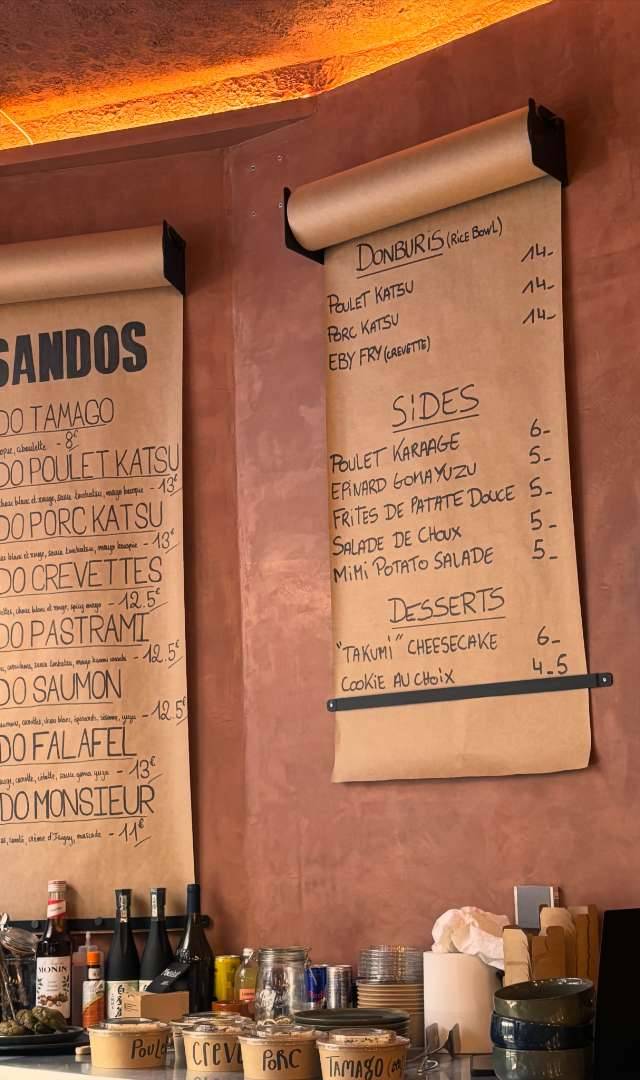 SANDOS
DO TAMAGO
ciboulette - 8€
DO POULET KATSU
chou blanc et rouge, sauce tonkatsu, mayo kewpie - 13€
DO PORC KATSU
blanc et rouge, sauce tonkatsu, mayo kewpie - 13€
DO CREVETTES
chou blanc et rouge, spicy mayo - 12.5€
DO PASTRAMI
sauce tonkatsu, mayo - 12.5€
DO SAUMON
carottes, chou blanc, sésame, yuzu - 12.5€
DO FALAFEL
rouge, carotte, sauce goma yuzu - 13€
DO MONSIEUR
comté, crème d'Isigny, muscade - 11€
DONBURIS (RICE BOWL)
POULET KATSU 14-
PORC KATSU 14-
EBY FRY (CREVETTE) 14-
SIDES
POULET KARAAGE 6-
EPINARD GOMAYUZU 5-
FRITES DE PATATE DOUCE 5-
SALADE DE CHOUX 5-
MIMI POTATO SALADE 5-
DESSERTS
"TAKUMI" CHEESECAKE 6-
COOKIE AU CHOIX 4-5
MONIN
POULE
CREV
PORC
TAMAGO